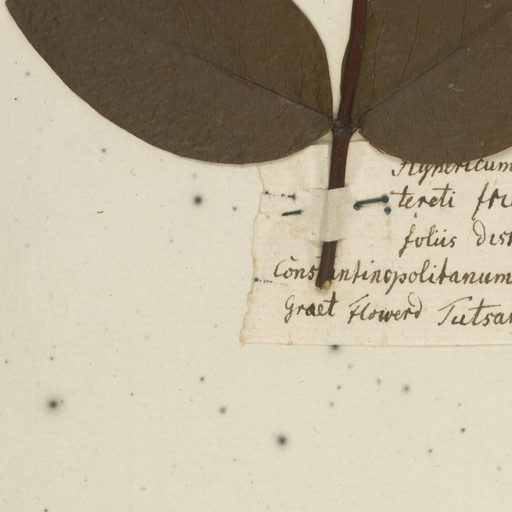 Hypericum
tereti
foliis
Constantinopolitanum
Graet Flowerd Tutsan